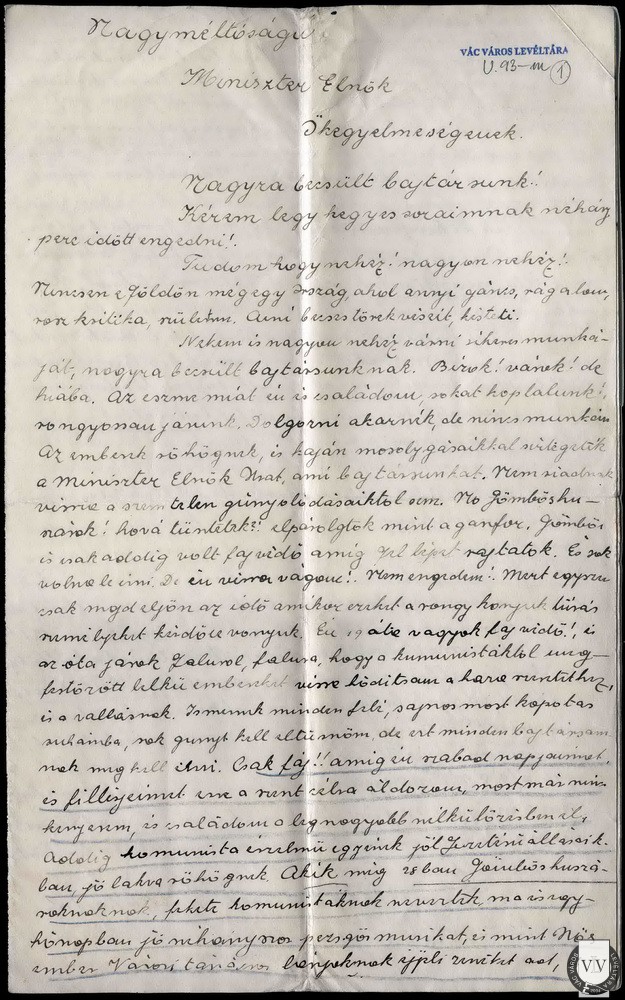 Nagyméltóságu
VÁC VÁROS LEVÉLTÁRA
V. 93-m 1
Miniszter Elnök
Őkegyelmeségenek.
Nagyra becsült bajtársunk!
Kérem légy kegyes soraimnak néhány
perc időtt engedni!
Tudom hogy nehéz! nagyon nehéz!
Nincsen e földön még egy ország, ahol annyi gáncs, rágalom,
rosz kritika,
Nekem is nagyon nehéz várni sikeres munká-
ját, nagyra becsült bajtársunknak. Bizok! várok! de
hiába. Az eszme miát én is családom, sokat koplalunk!,
rongyosan járunk. Dolgozni akarnék, de nincs munkám
Az emberek röhögnek, is kaján mosolygásaikkal
a Miniszter Elnök Urat, ami bajtársunkat. Nem riadnak
vissza a szemtelen gúnyolódásaiktól sem. No Gömböshu-
szárok! hová tüntetek?! elpárolgtok mint a ganfor. Gömbös
is csak addig volt fajvédő amig fel lépet rajtatok. És sok
volna le irni. De én vissza vágom! Nem engedem! Mert egyszer
csak majd eljön az idő amikor ezeket a rongy
Én 19 óta vagyok fajvédő!, is
az óta járok faluról, falura, hogy a kumunistáktól meg-
fertőzött lelkü embereket vissza lóditsam a haza szeretethez,
is a vallásnak. Ismernek minden felé, sajnos most kopotas
ruhámba, sok gunyt kell eltürnöm, de ezt minden bajtársam-
nak meg kell élni. Csak fáj!! amig én szabad napjaimat,
is filléreimet erre a szent célra áldozom, most már nin-
kenyerem, is családom a legnagyobb nélkülözésben él,
addig komunista érzelmü egyének jól fizetési állásaik-
ban, jó lakva röhögnek. Akik még 28ban Gömböshuszá-
roknak, fekete komunistáknak neveztek, ma is egy-
hónapban jó néhányszor pezsgős musikat, is mint Nős
ember Városi tanácsos lányoknak éjjeli zenéket ad,